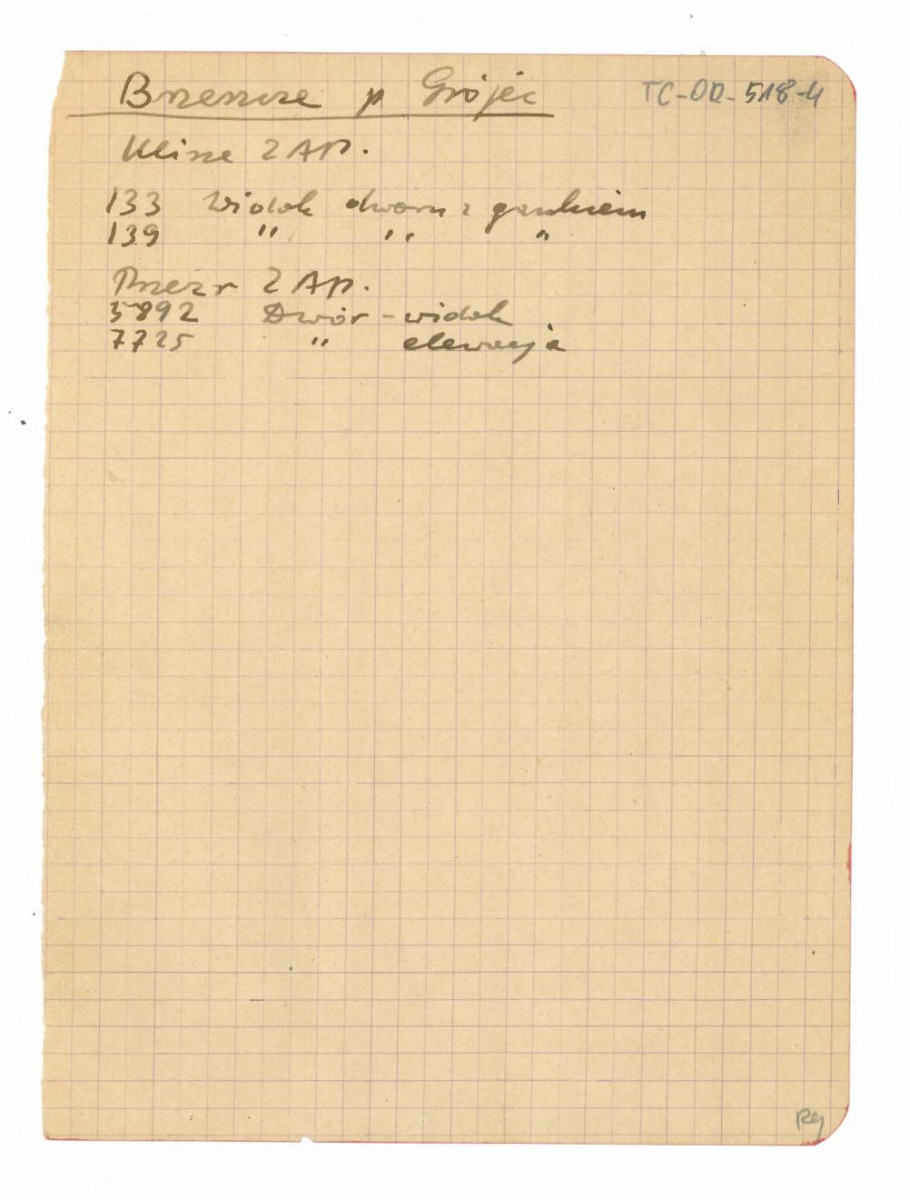 Brzeszcze p Grójec TC-OD-518-4
Klisze ZAP.
133 Widok dworu z gankiem
139 " " "
Przezr ZAP.
5892 Dwór - widok
7725 " elewacja